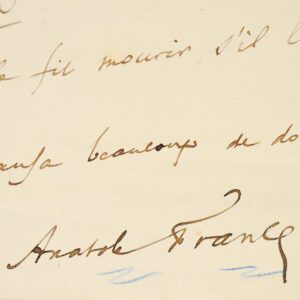 le fit mourir, s'il l
causa beaucoup de do
Anatole France